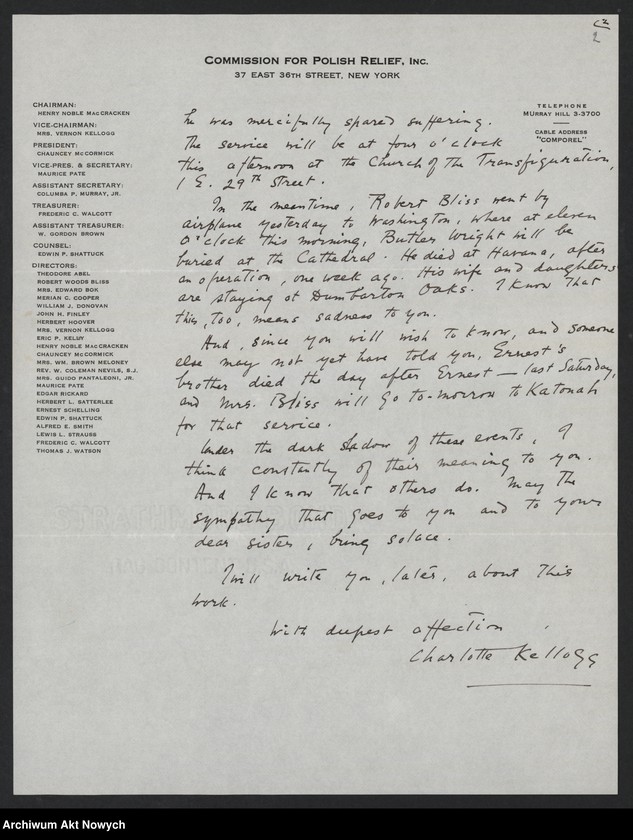 c2
2
COMMISSION FOR POLISH RELIEF, INC.
37 EAST 36TH STREET, NEW YORK
TELEPHONE
MURRAY HILL 3-3700
CABLE ADDRESS
"COMPOREL"
CHAIRMAN:
HENRY NOBLE MACCRACKEN
VICE-CHAIRMAN:
MRS. VERNON KELLOGG
PRESIDENT:
CHAUNCEY MCCORMICK
VICE-PRES. & SECRETARY:
MAURICE PATE
ASSISTANT SECRETARY:
COLUMBA P. MURRAY, JR.
TREASURER:
FREDERIC C. WALCOTT
ASSISTANT TREASURER:
W. GORDON BROWN
COUNSEL:
EDWIN P. SHATTUCK
DIRECTORS:
THEODORE ABEL
ROBERT WOODS BLISS
MRS. EDWARD BOK
MERIAN C. COOPER
WILLIAM J. DONOVAN
JOHN H. FINLEY
HERBERT HOOVER
MRS. VERNON KELLOGG
ERIC P. KELLY
HENRY NOBLE MACCRACKEN
CHAUNCEY MCCORMICK
MRS. WM. BROWN MELONEY
REV. W. COLEMAN NEVILS, S.J.
MRS. GUIDO PANTALEONI, JR.
MAURICE PATE
EDGAR RICKARD
HERBERT L. SATTERLEE
ERNEST SCHELLING
EDWIN P. SHATTUCK
ALFRED E. SMITH
LEWIS L. STRAUSS
FREDERIC C. WALCOTT
THOMAS J. WATSON
he was mercifully spared suffering.
The service will be at four o'clock
this afternoon at the Church of the Transfiguration,
1 E. 29th Street.
In the meantime, Robert Bliss went by
airplane yesterday to Washington, where at eleven
o'clock this morning, Butler Wright will be
buried at the Cathedral. He died at Havana, after
an operation, one week ago. His wife and daughters
are staying at Dumbarton Oaks. I know that
this, too, means sadness to you.
And, since you will wish to know, and someone
else may not yet have told you, Ernest's
brother died the day after Ernest – last Saturday,
and Mrs. Bliss will go to-morrow to Katonah
for that service.
Under the dark shadow of these events, I
think constantly of their meaning to you.
And I know that others do. May the
sympathy that goes to you and to your
dear sister, bring solace.
I will write you, later, about this
work.
With deepest affection,
Charlotte Kellogg
Archiwum Akt Nowych